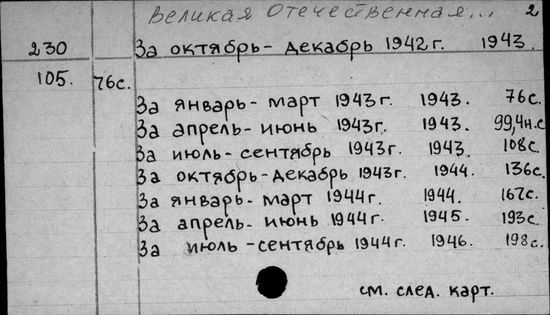 Великая Отечественная... 2
230 За октябрь - декабрь 1942г. 1943.
105. 76с.
За январь - март 1943г. 1943. 76с.
За апрель - июнь 1943г. 1943. 99,4н.с
За июль - сентябрь 1943г. 1943. 108с.
За октябрь - декабрь 1943г. 1944. 136с.
За январь - март 1944г. 1944. 167с.
За апрель - июнь 1944г. 1945. 193с.
За июль - сентябрь 1944г. 1946. 198с.
см. след. карт.